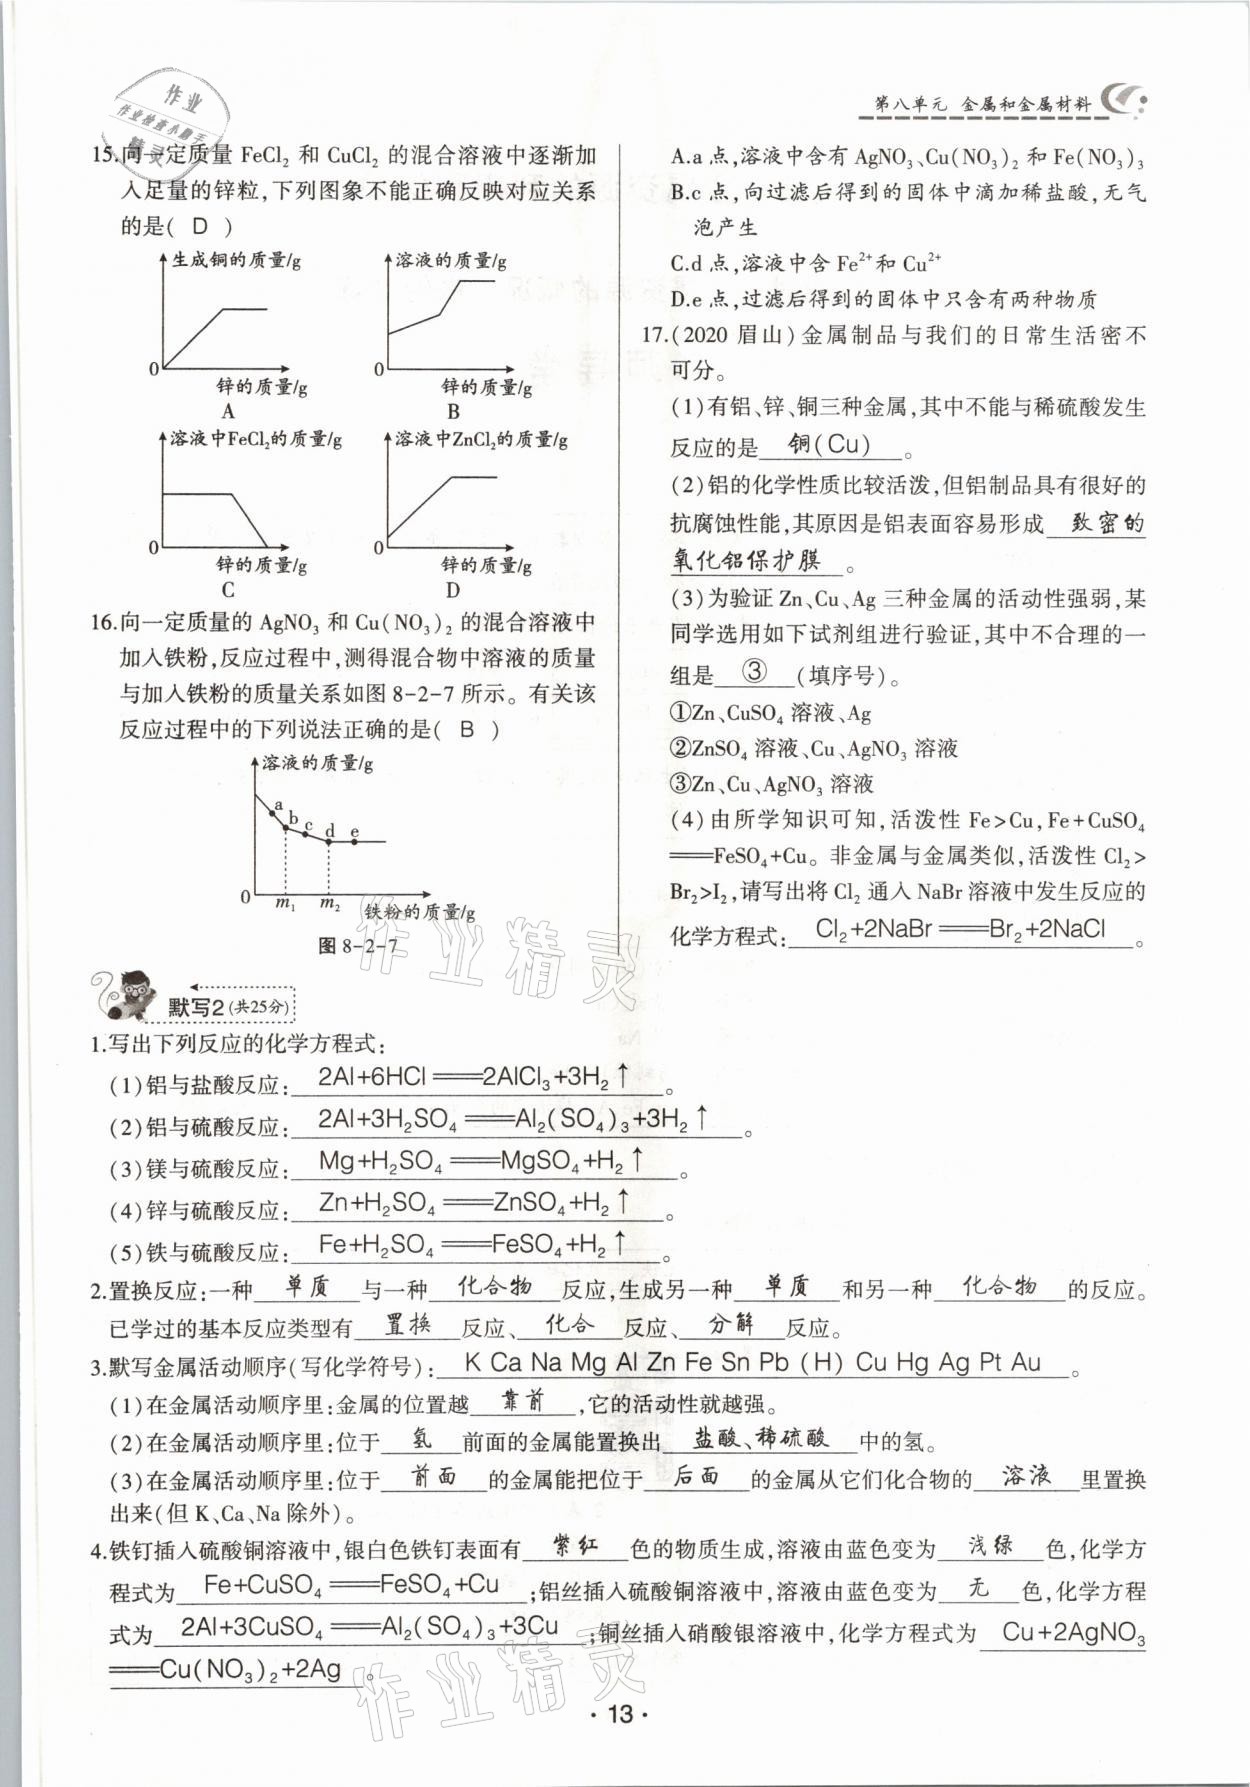 第八单元 金属和金属材料
作业
作业检查小助手
精灵
15.向一定质量 FeCl₂ 和 CuCl₂ 的混合溶液中逐渐加
入足量的锌粒,下列图象不能正确反映对应关系
的是( D )
生成铜的质量/g
0
锌的质量/g
A
溶液的质量/g
0
锌的质量/g
B
溶液中FeCl₂的质量/g
0
锌的质量/g
C
溶液中ZnCl₂的质量/g
0
锌的质量/g
D
16.向一定质量的 AgNO₃ 和 Cu(NO₃)₂ 的混合溶液中
加入铁粉,反应过程中,测得混合物中溶液的质量
与加入铁粉的质量关系如图8-2-7所示。有关该
反应过程中的下列说法正确的是( B )
溶液的质量/g
a
b
c
d
e
0
m₁
m₂
铁粉的质量/g
图 8-2-7
A.a 点,溶液中含有 AgNO₃、Cu(NO₃)₂ 和 Fe(NO₃)₃
B.c 点,向过滤后得到的固体中滴加稀盐酸,无气
泡产生
C.d 点,溶液中含 Fe²⁺和 Cu²⁺
D.e 点,过滤后得到的固体中只含有两种物质
17.(2020 眉山)金属制品与我们的日常生活密不
可分。
(1)有铝、锌、铜三种金属,其中不能与稀硫酸发生
反应的是 铜(Cu) 。
(2)铝的化学性质比较活泼,但铝制品具有很好的
抗腐蚀性能,其原因是铝表面容易形成 致密的
氧化铝保护膜 。
(3)为验证 Zn、Cu、Ag 三种金属的活动性强弱,某
同学选用如下试剂组进行验证,其中不合理的一
组是 ③ (填序号)。
①Zn、CuSO₄ 溶液、Ag
②ZnSO₄ 溶液、Cu、AgNO₃ 溶液
③Zn、Cu、AgNO₃ 溶液
(4)由所学知识可知,活泼性 Fe>Cu,Fe+CuSO₄
══FeSO₄+Cu。非金属与金属类似,活泼性 Cl₂>
Br₂>I₂,请写出将 Cl₂ 通入 NaBr 溶液中发生反应的
化学方程式: Cl₂+2NaBr══Br₂+2NaCl 。
作业精灵
默写2(共25分)
1.写出下列反应的化学方程式:
(1)铝与盐酸反应: 2Al+6HCl══2AlCl₃+3H₂↑ 。
(2)铝与硫酸反应: 2Al+3H₂SO₄══Al₂(SO₄)₃+3H₂↑ 。
(3)镁与硫酸反应: Mg+H₂SO₄══MgSO₄+H₂↑ 。
(4)锌与硫酸反应: Zn+H₂SO₄══ZnSO₄+H₂↑ 。
(5)铁与硫酸反应: Fe+H₂SO₄══FeSO₄+H₂↑ 。
2.置换反应:一种 单质 与一种 化合物 反应,生成另一种 单质 和另一种 化合物 的反应。
已学过的基本反应类型有 置换 反应、 化合 反应、 分解 反应。
3.默写金属活动顺序(写化学符号): K Ca Na Mg Al Zn Fe Sn Pb (H) Cu Hg Ag Pt Au 。
(1)在金属活动顺序里:金属的位置越 靠前 ,它的活动性就越强。
(2)在金属活动顺序里:位于 氢 前面的金属能置换出 盐酸、稀硫酸 中的氢。
(3)在金属活动顺序里:位于 前面 的金属能把位于 后面 的金属从它们化合物的 溶液 里置换
出来(但 K、Ca、Na 除外)。
4.铁钉插入硫酸铜溶液中,银白色铁钉表面有 紫红 色的物质生成,溶液由蓝色变为 浅绿 色,化学方
程式为 Fe+CuSO₄══FeSO₄+Cu ;铝丝插入硫酸铜溶液中,溶液由蓝色变为 无 色,化学方程
式为 2Al+3CuSO₄══Al₂(SO₄)₃+3Cu ;铜丝插入硝酸银溶液中,化学方程式为 Cu+2AgNO₃
══Cu(NO₃)₂+2Ag 。
作业精灵
· 13 ·